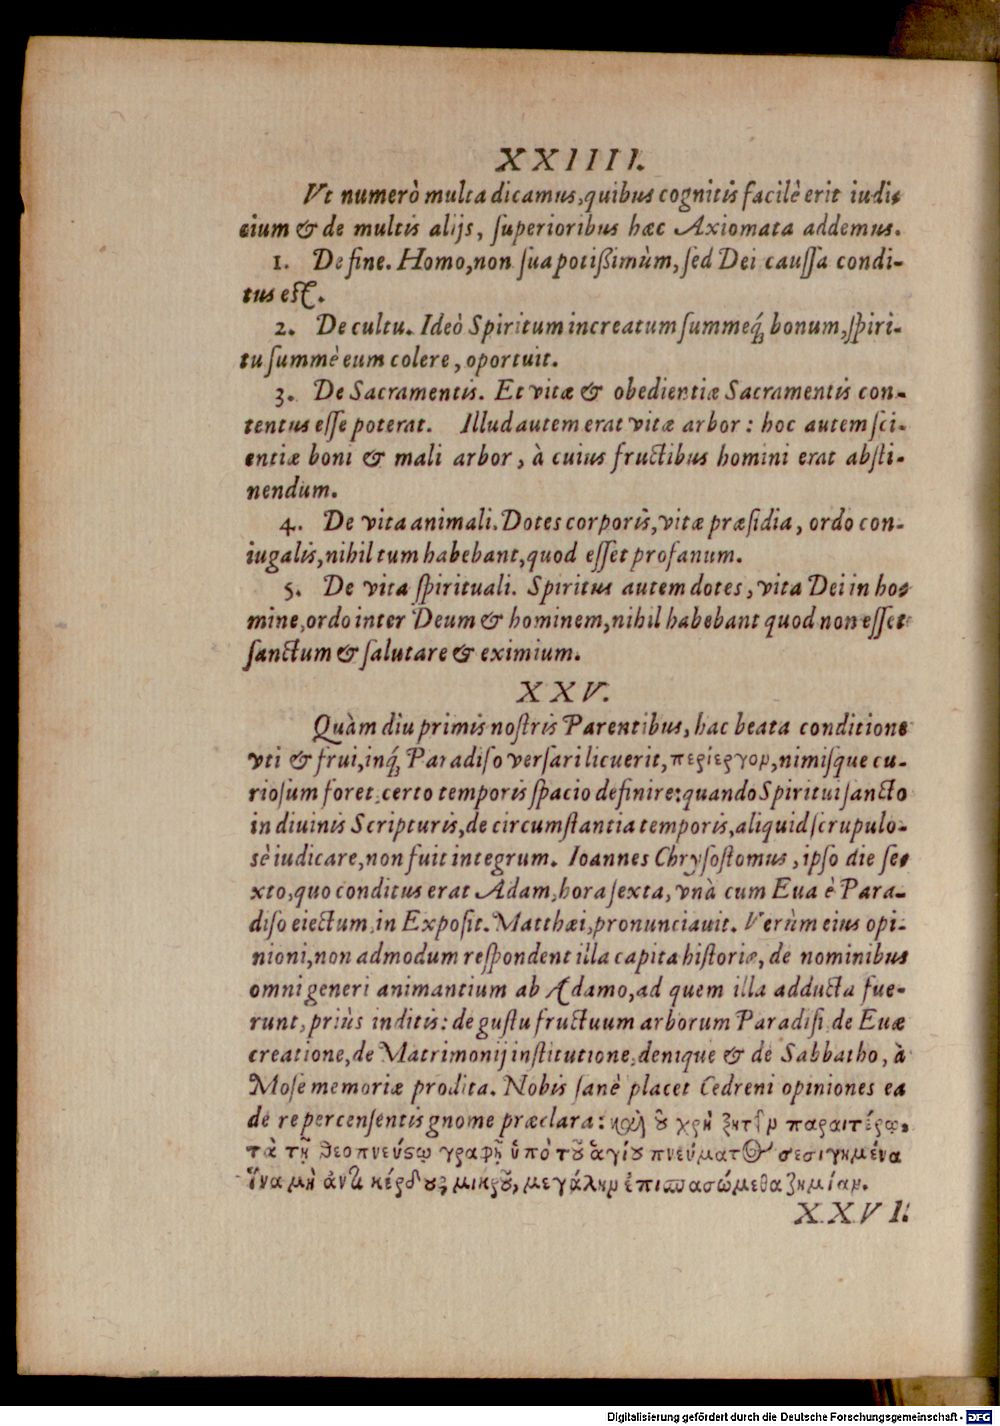 XXIIII.
Vt numerò multa dicamus, quibus cognitis facilè erit iudi-
cium & de multis alijs, superioribus hæc Axiomata addemus.
1. De fine. Homo, non sua potißimùm, sed Dei caussa condi-
tus est.
2. De cultu. Ideò Spiritum increatum summeq́; bonum, spiri-
tu summè eum colere, oportuit.
3. De Sacramentis. Et vitæ & obedientiæ Sacramentis con-
tentus esse poterat. Illud autem erat vitæ arbor: hoc autem sci-
entiæ boni & mali arbor, à cuius fructibus homini erat absti-
nendum.
4. De vita animali. Dotes corporis, vitæ præsidia, ordo con-
iugalis, nihil tum habebant, quod esset profanum.
5. De vita spirituali. Spiritus autem dotes, vita Dei in ho-
mine, ordo inter Deum & hominem, nihil habebant quod non esset
sanctum & salutare & eximium.
XXV.
Quàm diu primis nostris Parentibus, hac beata conditione
vti & frui, inq́; Paradiso versari licuerit, περίεργον, nimisque cu-
riosum foret, certo temporis spacio definire: quando Spiritui sancto
in diuinis Scripturis, de circumstantia temporis, aliquid scrupulo-
sè iudicare, non fuit integrum. Ioannes Chrysostomus, ipso die se-
xto, quo conditus erat Adam, hora sexta, vnà cum Eua è Para-
diso eiectum, in Exposit. Matthæi, pronunciauit. Verùm eius opi-
nioni, non admodum respondent illa capita historiæ, de nominibus
omni generi animantium ab Adamo, ad quem illa adducta fue-
runt, priùs inditis: de gustu fructuum arborum Paradisi, de Euæ
creatione, de Matrimonij institutione, denique & de Sabbatho, à
Mose memoriæ prodita. Nobis sanè placet Cedreni opiniones ea
de re percensentis gnome præclara: καὶ οὐ χρὴ ζητεῖν παραιτέρω,
τὰ τῇ θεοπνεύστῳ γραφῇ ὑπὸ τοῦ ἁγίου πνεύματος σεσιγημένα
ἵνα μὴ ἀντὶ κέρδους μικροῦ, μεγάλην ἐπισπασώμεθα ζημίαν.
XXVI.
Digitalisierung gefördert durch die Deutsche Forschungsgemeinschaft - DFG